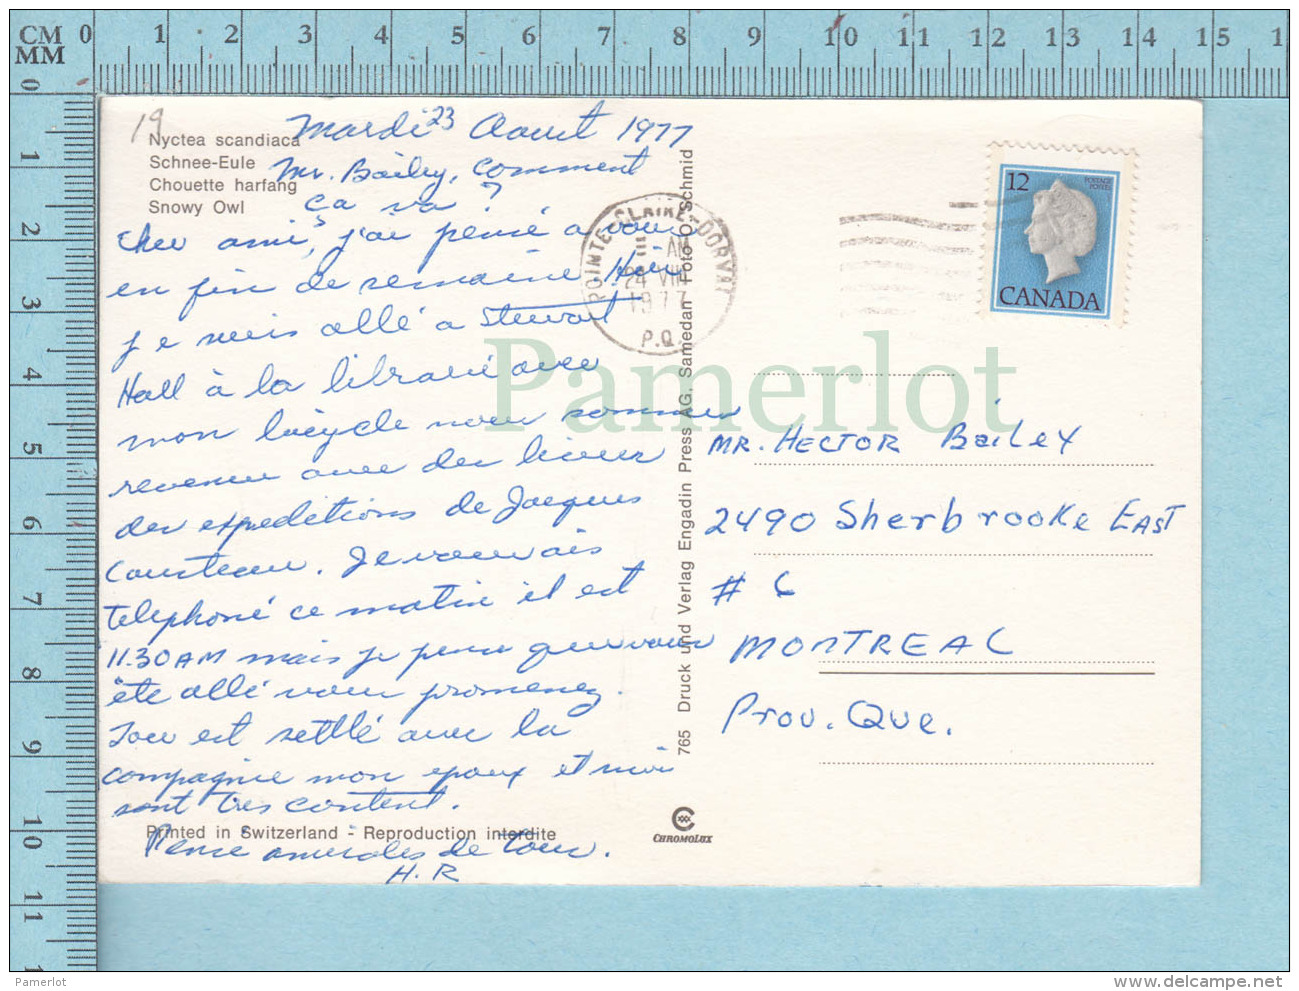 CM 0 1 2 3 4 5 6 7 8 9 10 11 12 13 14 15 1
MM
0 1 2 3 4 5 6 7 8 9 10 11 1
19
Nyctea scandiaca
Schnee-Eule
Chouette harfang
Snowy Owl
Mardi 23 Aout 1977
Mr. Bailey, Comment
ca va?
Cher ami, j'ai pensé a vous
en fin de semaine Hier
je suis allé a Stewart
Hall à la librarie avec
mon bicycle nous sommes
revenu avec des livres
des expeditions de Jacques
Cousteau. Je vous ais
telephoné ce matin il est
11.30 AM mais je pense que vous
éte allé vous promenez.
Tou est settlé avec la
compagnie mon epoux et moi
sont tres content.
Printed in Switzerland - Reproduction interdite
Pensé amicales de tous.
H.R
765 Druck und Verlag Engadin Press AG, Samedan Foto O. Schmid
POINTE-CLAIRE-DORVAL
AM
24 VIII
1977
P.Q.
12
POSTAGE
POSTES
CANADA
Pamerlot
MR. HECTOR BaiLEY
2490 SherbrooKe EAST
# 6
MONTREAL
Prov. Que.
CHROMOLUX
Pamerlot
www.delcampe.net